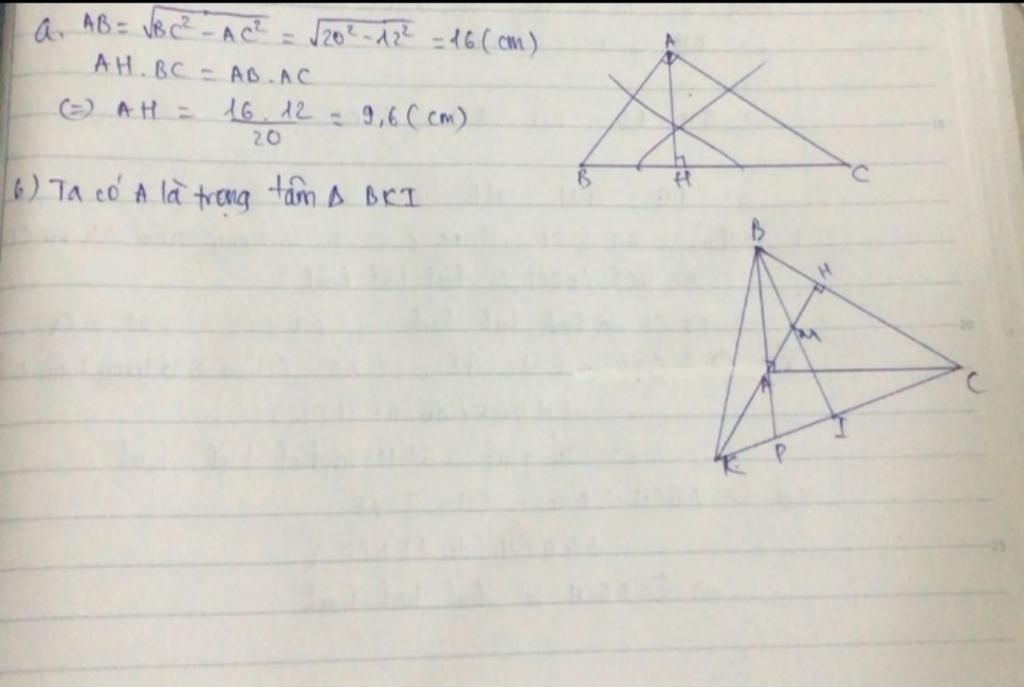 a. AB = √BC² - AC² = √20² - 12² = 16 (cm)
AH . BC = AB . AC
(=) AH = 16 . 12 / 20 = 9,6 (cm)
b) Ta có A là trọng tâm Δ BKI
A
B
H
C
B
H
M
A
C
I
K
P